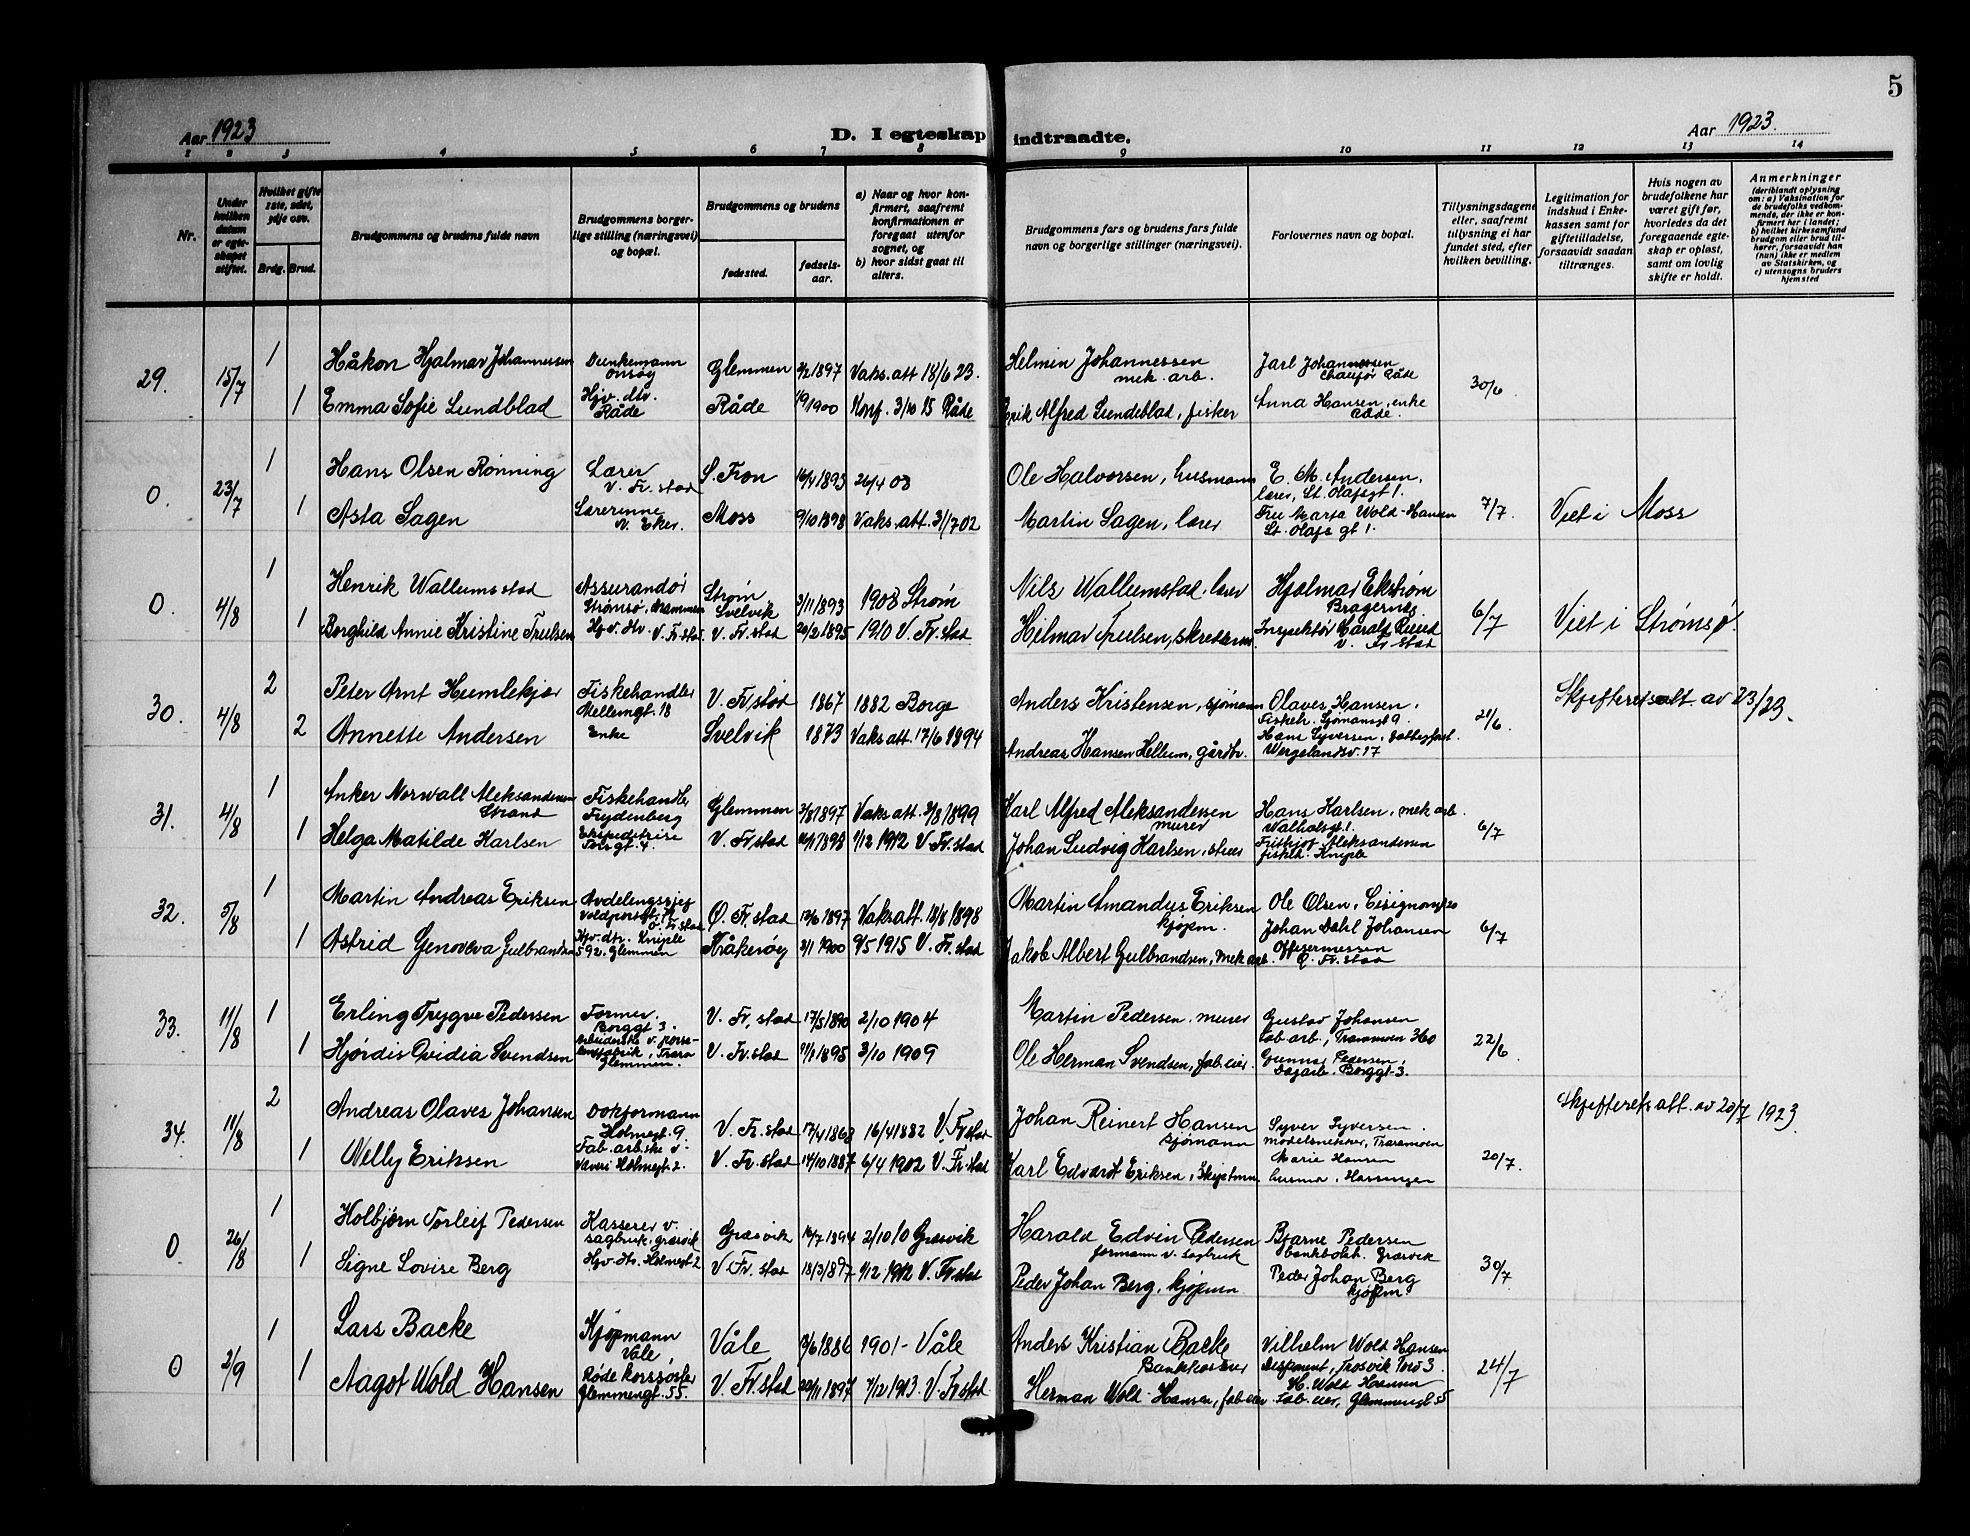 5
Aar 1923
D. I egteskap indtraadte.
Aar 1923.
1 2 3 4 5 6 7 8 9 10 11 12 13 14
Nr.
Under hvilken datum er egteskapet stiftet.
Hvilket gifte 1ste, 2det, 3dje osv.
Brdg. Brud.
Brudgommens og brudens fulde navn
Brudgommens borgerlige stilling (næringsvei) og bopæl.
Brudgommens og brudens
fødested.
fødselsaar.
a) Naar og hvor konfirmert, saafremt konfirmationen er foregaat utenfor sognet, og
b) hvor sidst gaat til alters.
Brudgommens fars og brudens fars fulde navn og borgerlige stillinger (næringsvei).
Forlovernes navn og bopæl.
Tillysningsdagene eller, saafremt tillysning ei har fundet sted, efter hvilken bevilling.
Legitimation for indskud i Enkekassen samt for giftetilladelse, forsaavidt saadan tiltrænges.
Hvis nogen av brudefolkene har været gift før, hvorledes da det foregaaende egteskap er opløst, samt om lovlig skifte er holdt.
Anmerkninger
(deriblandt oplysning om: a) Vaksination for de brudefolks vedkommende, der ikke er konfirmert her i landet; b) hvilket kirkesamfund brudgom eller brud tilhører, forsaavidt han (hun) ikke er medlem av Statskirken, og c) utensogns bruders hjemsted
29. 15/7 1 Håkon Hjalmar Johannessen Dunkemann Onsøy Glemmen 2/2 1897 Vaks.att 18/6 23. Helmin Johannessen mek. arb. Jarl Johannessen Chaufør Råde 30/6
1 Emma Sofie Lundblad Hjv. dtr. Råde Råde 1900 Konf. 3/10 15 Råde Erik Alfred Lundeblad, fisker Anna Hansen, enke Råde.
0. 23/7 1 Hans Olsen Rønning Lærer V. Fr.stad S. Fron 16/4 1893 26/4 08 Ole Halvorsen, husmann E. M. Andersen, lærer, St. Olafsgt 1. 7/7. Viet i Moss
1 Asta Sagen Lærerinne N. Eker. Moss 9/10 1898 Vaks.att. 31/7 02 Martin Sagen, lærer Fru Marta Wold-Hansen St. Olafs gt 1.
0. 4/8 1 Henrik Wallumstad Assurandør Strømsø, Drammen Strøm, Svelvik 3/11 1893 1908 Strøm Nils Wallumstad, lærer Hjalmar Ekstrøm Bragernes. 6/7 Viet i Strømsø.
1 Borghild Annie Kristine Truelsen Hjv. dtr. V. Fr.stad V. Fr.stad 20/2 1895 1910 V. Fr.stad Hilmar Truelsen, skredderm. Inspektør Harald Ruud V. Fr.stad
30. 4/8 2 Peter Arnt Humlekjær Fiskehandler Mellemgt. 18 V. Fr.stad 1867 1882 Borge Anders Kristensen, sjømann Olaves Hansen, Fiskeh. Sjømansgt 9. 21/6. Skifteretsatt. av 23/23.
2 Annette Andersen Enke Svelvik 1873 Vaks att. 17/6 1894 Andreas Hansen Hellum, gårdbr. Hans Syversen, Wergelandsv. 17
31. 4/8 1 Anker Norwall Aleksandersen Strand Fiskehandler Frydenberg Glemmen 3/8 1897 Vaks att. 7/8 1899 Karl Alfred Aleksandersen murer Hans Karlsen, mek arb. Walhalsgt. 1. 6/7
1 Helga Matilde Karlsen Ekspeditrise Torvgt. 4. V. Fr.stad 1898 1/12 1912 V. Fr.stad Johan Ludvig Karlsen, stuer Fritjof Aleksandersen fiskeh. Kniple
32. 5/8 1 Martin Andreas Eriksen Avdelingssjef Voldportgt. Ø. Fr.stad Ø. Fr.stad 12/6 1897 Vaks att. 18/8 1898 Martin Amandus Eriksen kjøpm. Ole Olsen, 6/7
1 Astrid Genoveva Gulbrandsen Hjv. dtr. Kniple 592. Glemmen Kråkerøy 3/1 1900 9/5 1915 V. Fr.stad Jakob Albert Gulbrandsen, mek arb. Johan Dahl Johansen Offisermessen Ø. Fr.stad
33. 11/8 1 Erling Trygve Pedersen Former. Borggt 3. V. Fr.stad 17/5 1890 2/10 1904 Martin Pedersen, murer Gustav Johansen Fab. arb., Traramoen 360 22/6.
1 Hjørdis Ovidia Svendsen Arbeiderske v. Trara Glemmen. V. Fr.stad 11/1 1895 3/10 1909 Ole Herman Svendsen, fab. eier. Gunnar Pedersen, Dagarb. Borggt. 3.
34. 11/8 2 Andreas Olaves Johansen Dokformann Holmegt. 9. V. Fr.stad 17/4 1868 16/4 1882 V. Fr.stad Johan Reinert Hansen sjømann Syver Syversen. modelsnekker, Traramoen 20/7. Skifterets att. av 20/7 1923.
1 Nelly Eriksen Fab. arb.ske v. Væveri Holmegt. 2. V. Fr.stad 14/10 1887 6/4 1902 V. Fr.stad Karl Edvardt Eriksen, Skipstmm. Marie Hansen husmor, Hassingen
0 26/8 1 Kolbjørn Torleif Pedersen Kasserer v. sagbruk. Græsvik Græsvik 16/7 1894 2/10 10 Græsvik Harald Edvin Pedersen formann v. Sagbruk Bjarne Pedersen bankbokh. Græsvik 30/7
1 Signe Lovise Berg Hjv. dtr. Holmegt 2 V. Fr.stad 18/3 1897 1/12 1912 V. Fr.stad Peder Johan Berg, kjøpmn Peder Johan Berg kjøpm.
0 2/9 1 Lars Backe Kjøpmann Våle Våle 1886 1901 - Våle Anders Kristian Backe Bankkasserer Vilhelm Wold Hansen Disponent, Trosvik Torv 3. 24/7
1 Aagot Wold Hansen Røde korssøster Glemmengt. 55 V. Fr.stad 20/11 1897 7/12 1913. V. Fr.stad Herman Wold-Hansen, fab.eier H. Wold Hansen Fab. eier, Glemmengt 55